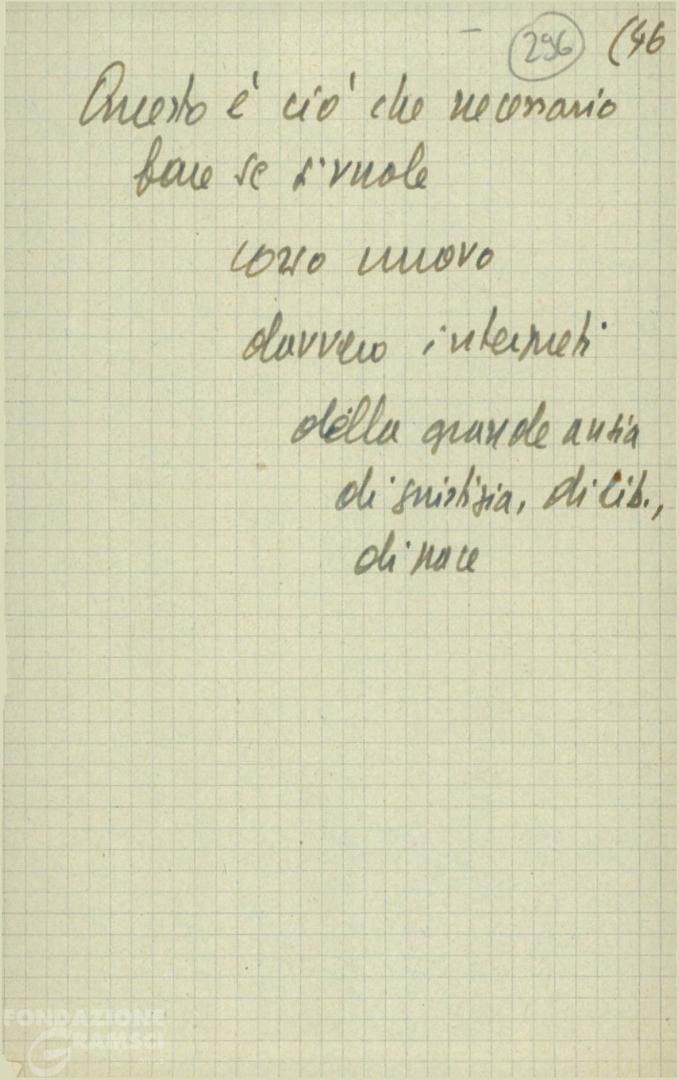 296 (46
Questo è ciò che necessario
fare se si vuole
corso nuovo
davvero interpreti
della grande ansia
di giustizia, di lib.,
di pace
FONDAZIONE
GRAMSCI